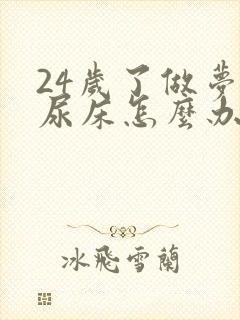 24歲了做夢
尿床怎麼办
冰飛雪蘭